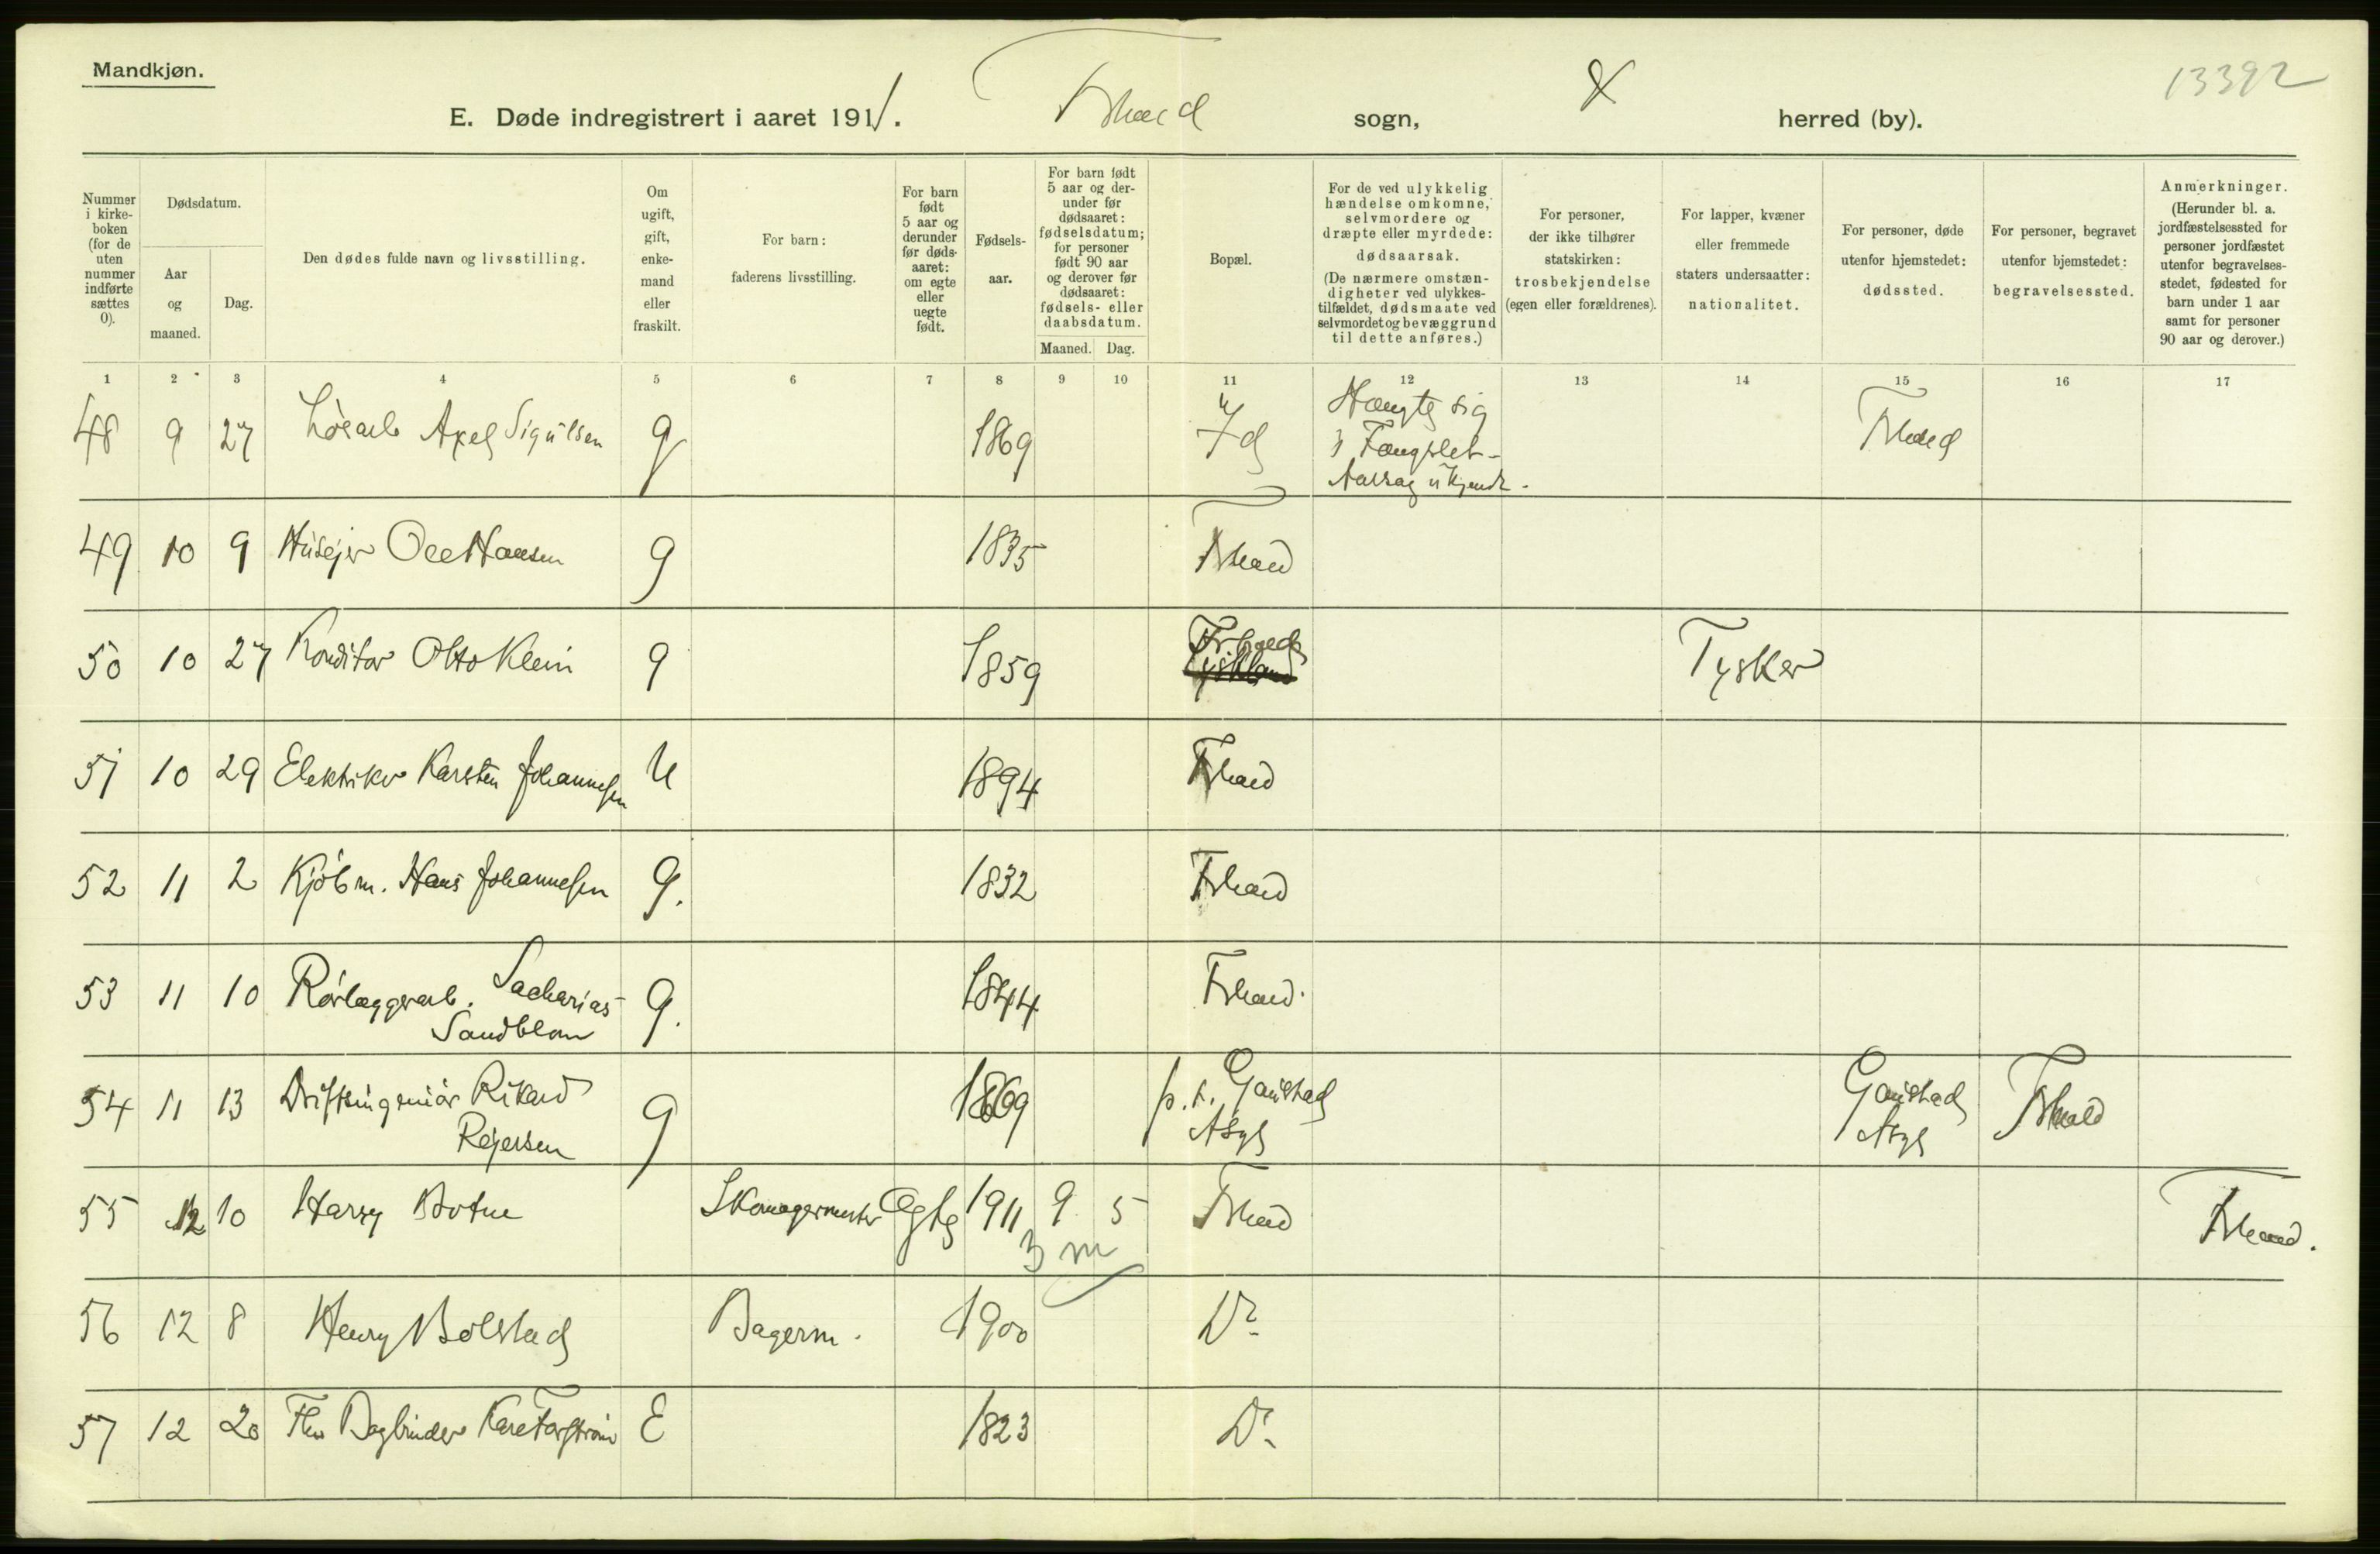 Mandkjøn.
13392
E. Døde indregistrert i aaret 1911. Fr.hald sogn, herred (by).
Nummer i kirke-boken (for de uten nummer indførte sættes 0).
Dødsdatum.
Aar og maaned.
Dag.
Den dødes fulde navn og livsstilling.
Om ugift, gift, enke-mand eller fraskilt.
For barn: faderens livsstilling.
For barn født 5 aar og derunder før døds-aaret: om egte eller uegte født.
Fødsels-aar.
For barn født 5 aar og der-under før dødsaaret: fødselsdatum; for personer født 90 aar og derover før dødsaaret: fødsels- eller daabsdatum.
Maaned. Dag.
Bopæl.
For de ved ulykkelig hændelse omkomne, selvmordere og dræpte eller myrdede: dødsaarsak. (De nærmere omstæn-digheter ved ulykkes-tilfældet, dødsmaate ved selvmordet og bevæggrund til dette anføres.)
For personer, der ikke tilhører statskirken: trosbekjendelse (egen eller forældrenes).
For lapper, kvæner eller fremmede staters undersaatter: nationalitet.
For personer, døde utenfor hjemstedet: dødssted.
For personer, begravet utenfor hjemstedet: begravelsessted.
Anmerkninger. (Herunder bl. a. jordfæstelsessted for personer jordfæstet utenfor begravelses-stedet, fødested for barn under 1 aar samt for personer 90 aar og derover.)
1 2 3 4 5 6 7 8 9 10 11 12 13 14 15 16 17
48 9 27 Løsarb Axel g 1869 Id Hængte sig i Fængslet - Aarsag ukjendt. Fr.hald
49 10 9 Huseier Ole Hansen g 1835 Fr.hald
50 10 27 Konditor Otto Klein g 1859 Fr.hald Tyskland Tysker
51 10 29 Elektriker Karsten Johannesen U 1894 Fr.hald
52 11 2 Kjøbm. Hans Johannesen g. 1832 Fr.hald
53 11 10 Rørlæggerarb. Sacharias Sandblom g. 1844 Fr.hald.
54 11 13 Driftsingeniør Rikard Rejersen g 1869 p.t. Gaustad Asyl Gaustad Asyl Fr.hald
55 12 10 Harry Botne Skomagermester Ægte 1911 9 5 Fr.hald Fr.hald.
3 m
56 12 8 Henry Bolstad Bagerm. 1900 Do
57 12 20 Fhv Bogbinder E 1823 Do